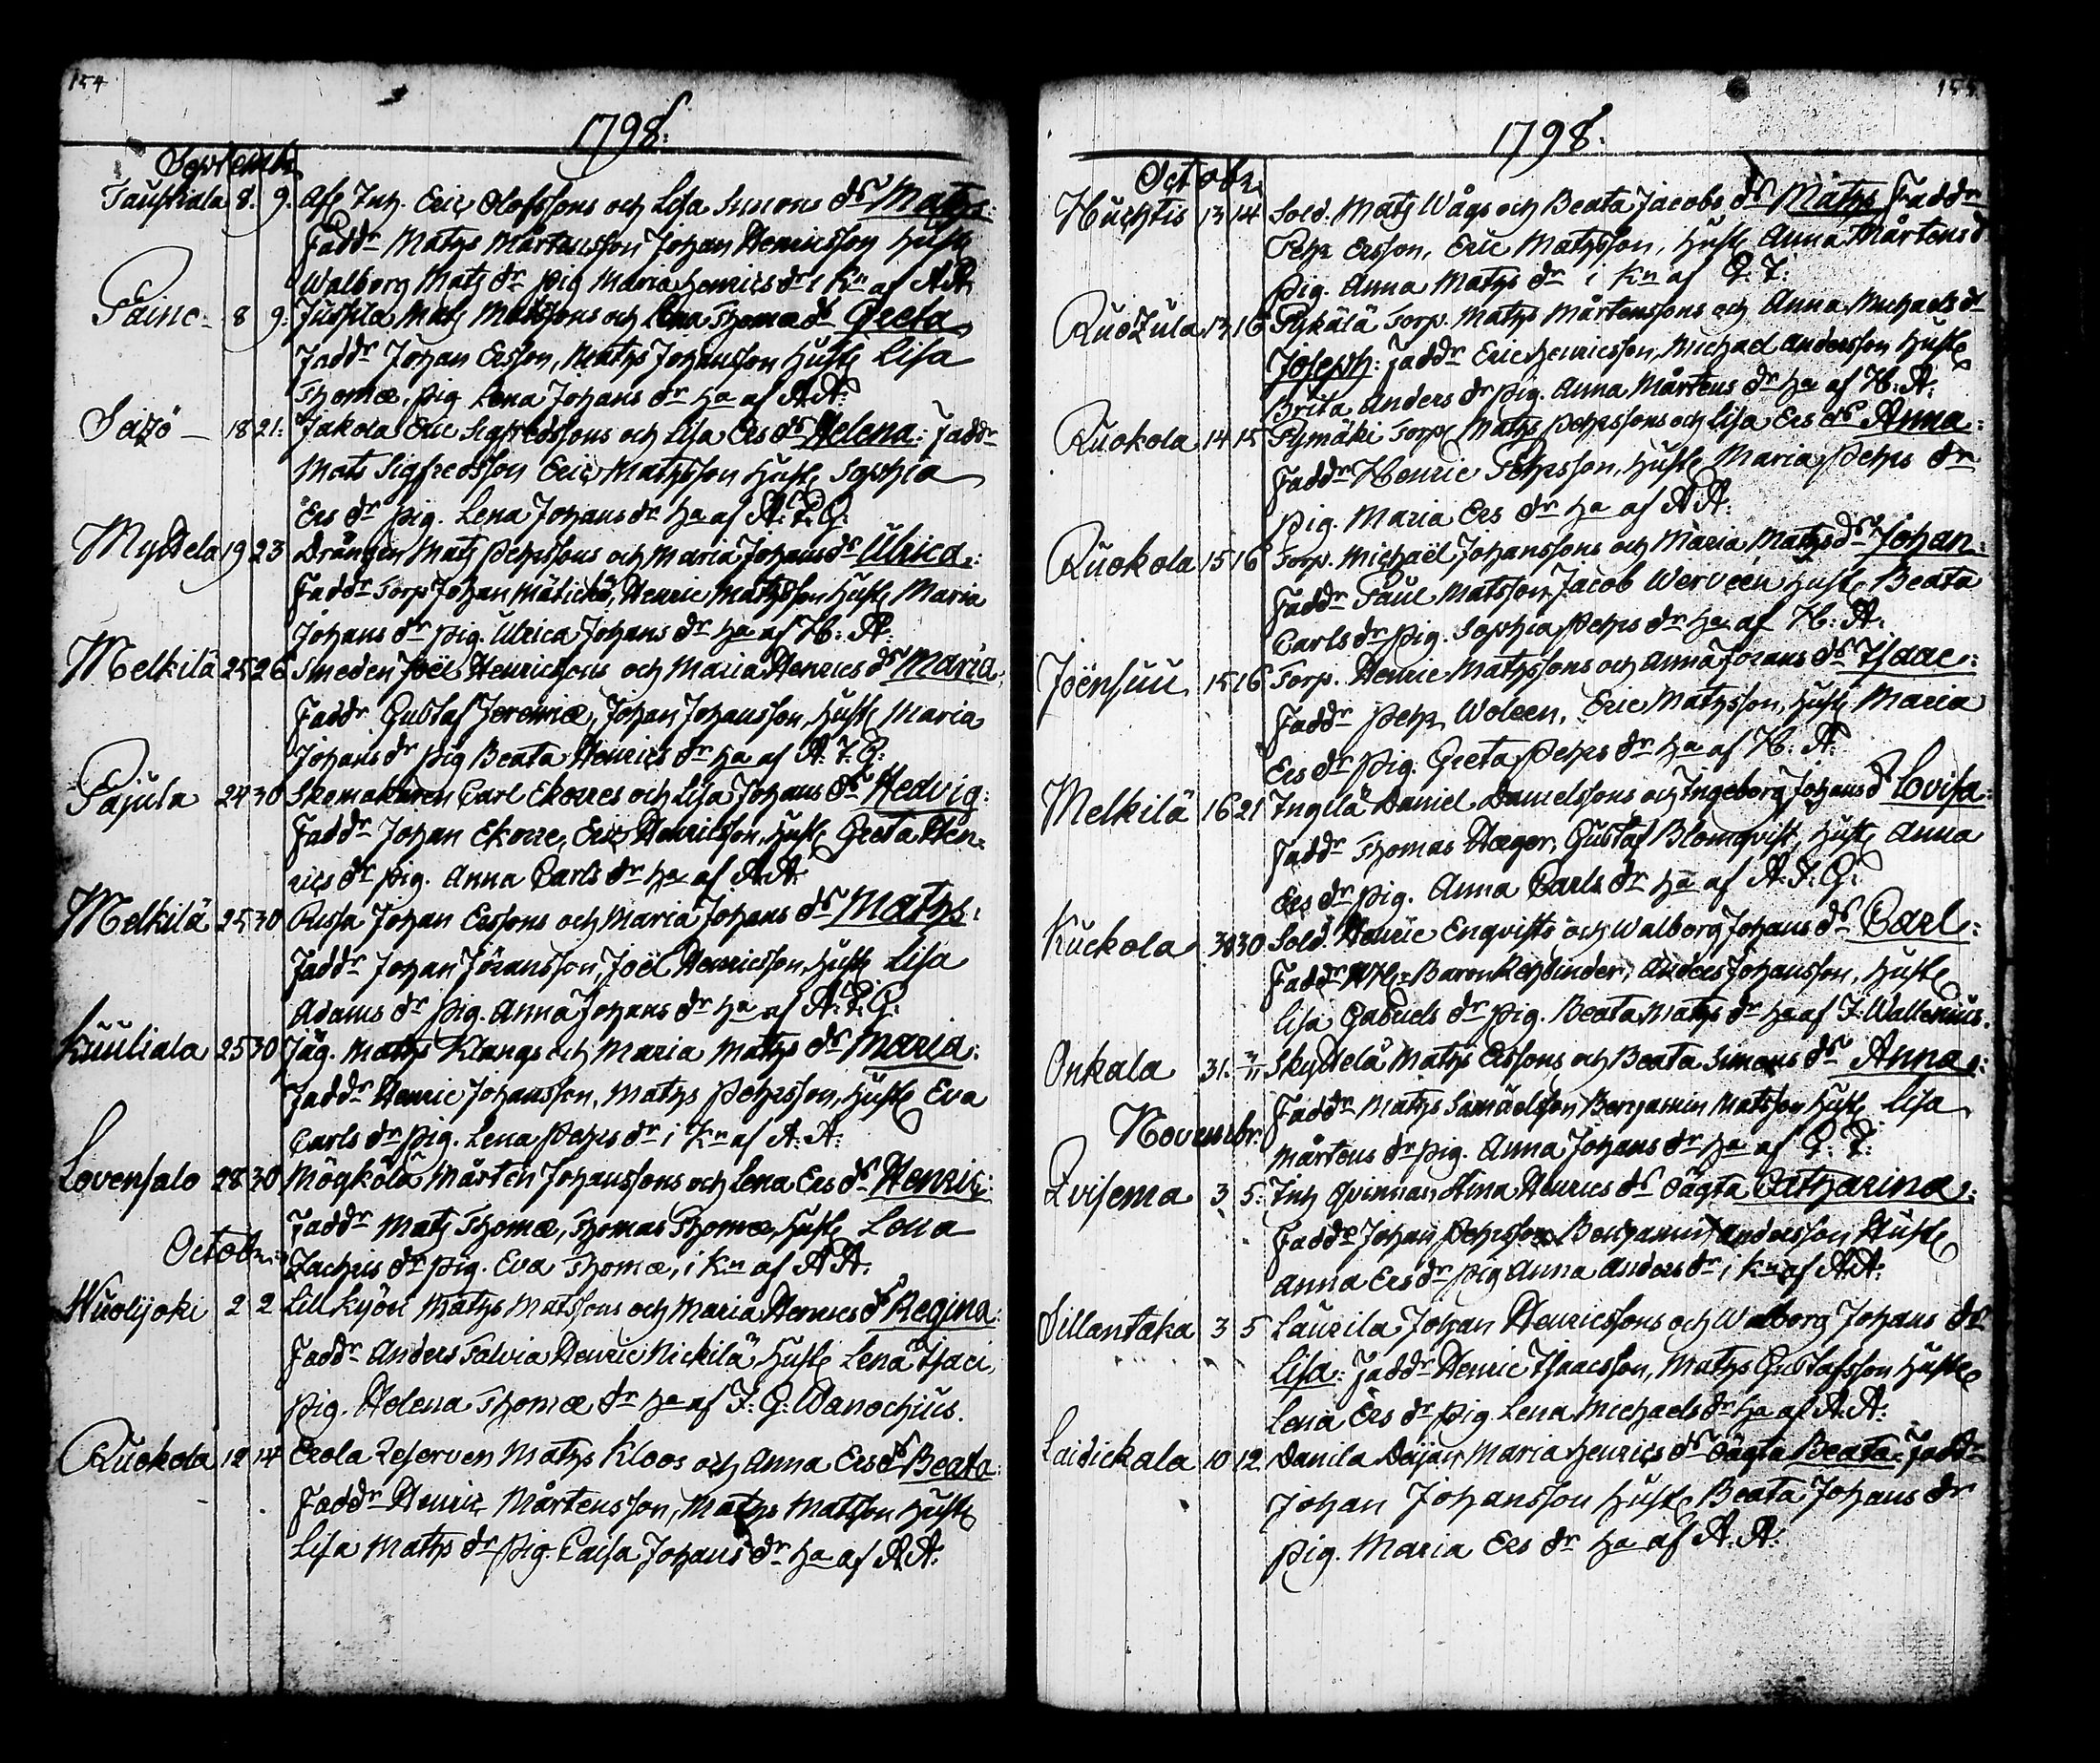 154
1798:
Septemb.
Tauhiala 8. 9. Afsk. Inh. Eric Olofssons och Lisa Simons dr Maths:
Faddr Maths Mårtensson Johan Henricsson Hustr
Walborg Mats dr pig Maria Henrics dr i Kn af A A:
Paino - 8 9: Jussila Mats Matssons och Lena Thomæ dr Greta
Faddr Johan Ersson, Maths Johansson Hustr Lisa
Thomæ, pig Lena Johans dr ha af A A:
Sajo - 18 21: Jakola Eric Sigfredssons och Lisa Ers dr Helena: Faddr
Mats Sigfredsson Eric Mathsson Hustr Sophia
Ers dr pig. Lena Johans dr ha af A: F: G:
Myttela 19 23 Drängen Mats Pehrssons och Maria Johans dr Ulrica:
Faddr Torp Johan Mätickö, Henric Mathsson Hustr Maria
Johans dr pig. Ulrica Johans dr ha af H: A:
Melkilä 25 26 Smeden Joël Henricssons och Maria Henrics dr Maria
Faddr Gustaf Jeremiæ, Johan Johansson, Hustr Maria
Johans dr pig Beata Henrics dr ha af A: F: G:
Pajula 24 30 Skomakaren Carl Ekorres och Lisa Johans dr Hedvig:
Faddr Johan Ekorre, Eric Henricsson, Hustr Greta Hen-
rics dr pig. Anna Carls dr ha af A A:
Melkilä 25 30 Russa Johan Erssons och Maria Johans dr Maths:
Faddr Johan Jöransson, Joël Henricsson, Hustr Lisa
Adams dr pig. Anna Johans dr ha af A: F: G:
Kuuliala 25 30 Jäg. Maths Klangs och Maria Maths dr Maria:
Faddr Henric Johansson, Maths Pehrsson, Hustr Eva
Carls dr pig. Lena Pehrs dr i Kn af A: A:
Lovensalo 28 30 Mögkölä Mårten Johanssons och Lena Ers dr Henric:
Faddr Mats Thomæ, Thomas Thomæ, Hustr Lena
October: Zachris dr pig. Eva Thomæ, i Kn af A A:
Wuolijoki 2 2 Lill Kyöri Maths Matssons och Maria Henrics dr Regina
Faddr Anders Salvia Henric Nickilä Hustr Lena Isaci
pig. Helena Thomæ dr ha af J: G: Wanochius.
Ruokola 12 14 Erola Reserven Maths Kloos och Anna Ers dr Beata:
Faddr Henric Mårtensson, Maths Matsson Hustr
Lisa Maths dr pig. Caisa Johans dr ha af A A:
155
1798:
Octobr.
Huchtis 13 14 Sold. Mats Wågs och Beata Jacobs dr Maths Faddr
Pehr Ersson, Eric Mathsson, Hustr Anna Mårtens dr
pig. Anna Maths dr i Kn af G: F:
13 16 Pykälä Torp. Maths Mårtenssons och Anna Michaels dr
Joseph: Faddr Eric Henricsson, Michael Andersson Hustr
Brita Anders dr pig. Anna Mårtens dr ha af H: A:
Ruokola 14 15 Pymäki Torp. Maths Pehrssons och Lisa Ers dr Anna:
Faddr Henric Pehrsson, Hustr Maria Pehrs dr
pig. Maria Ers dr ha af A A:
Ruokola 15 16 Torp. Michaël Johanssons och Maria Maths dr Johan:
Faddr Paul Matsson, Jacob Werveen Hustr Beata
Carls dr pig. Sophia Pehrs dr ha af H: A:
Joënsuu 15 16 Torp. Henric Mathssons och Anna Jörans dr Isaac:
Faddr Pehr Woleen, Eric Mathsson, Hustr Maria
Ers dr pig. Greta Pehrs dr ha af H: A:
Melkilä 16 21 Ingilä Daniel Danielssons och Ingeborg Johans dr Lovisa:
Faddr Thomas Hæger, Gustaf Blomqvist, Hustr Anna
Ers dr pig. Anna Carls dr ha af A: F: G:
Kuckola 30 30 Sold. Henric Enqvists och Walborg Johans dr Carl:
Faddr Hr Baron Rehbinder, Anders Johansson, Hustr
Lisa Gabriels dr pig. Beata Maths dr ha af J: Wallenius.
Onkala 31. Skyttelä Maths Erssons och Beata Simons dr Anna:
Faddr Maths Samuelsson Benjamin Matsson Hustr Lisa
Novembr: Mårtens dr pig. Anna Johans dr ha af G: F:
Qvisema 3 5: Inh Qvinnan Stina Henrics dr oägta Catharina:
Faddr Johan Pehrsson Benjamin Andersson Hustr
Anna Ers dr pig Anna Anders dr i Kn af A A:
Sillantaka 3 5 Laurila Johan Henricssons och Walborg Johans dr
Lisa: Faddr Henric Isaacsson, Maths Gustafsson Hustr
Lena Ers dr pig Lena Michaels dr ha af A: A:
Laidickala 10 12 Danila Dejan Maria Henrics dr oägta Beata: Faddr
Johan Johansson Hustr Beata Johans dr
pig. Maria Ers dr ha af A: A: